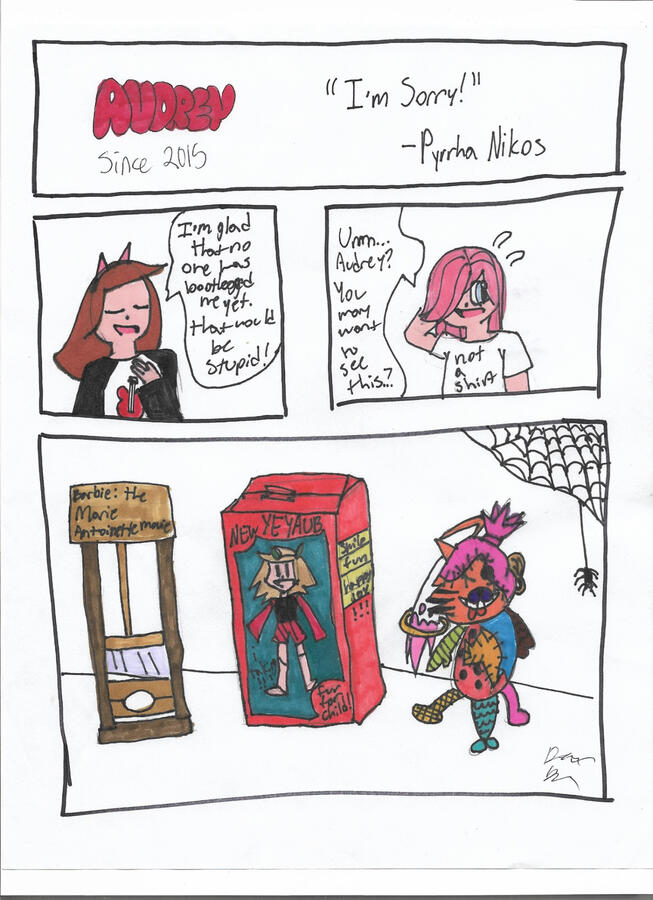 AUDREY
Since 2015
"I'm Sorry!"
-Pyrrha Nikos
I'm glad
that no
one has
bootlegged
me yet.
that would
be
stupid!
Umm...
Audrey?
You
may
want
to
see
this...?
??
not
a
shirt
Barbie: the
Marie
Antoinette movie
NEW YEYAUB
fun
!!!
fur
for
child!